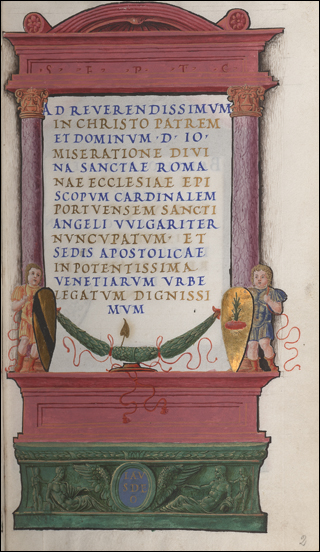 S · P · T · G
AD REVERENDISSIMVM
IN CHRISTO PATREM
ET DOMINVM · D · IO ·
MISERATIONE DIVI
NA SANCTAE ROMA
NAE ECCLESIAE EPI
SCOPVM CARDINALEM
PORTVENSEM SANCTI
ANGELI VVLGARITER
NVNCVPATVM · ET
SEDIS APOSTOLICAE
IN POTENTISSIMA
VENETIARVM VRBE
LEGATVM DIGNISSI
MVM
2